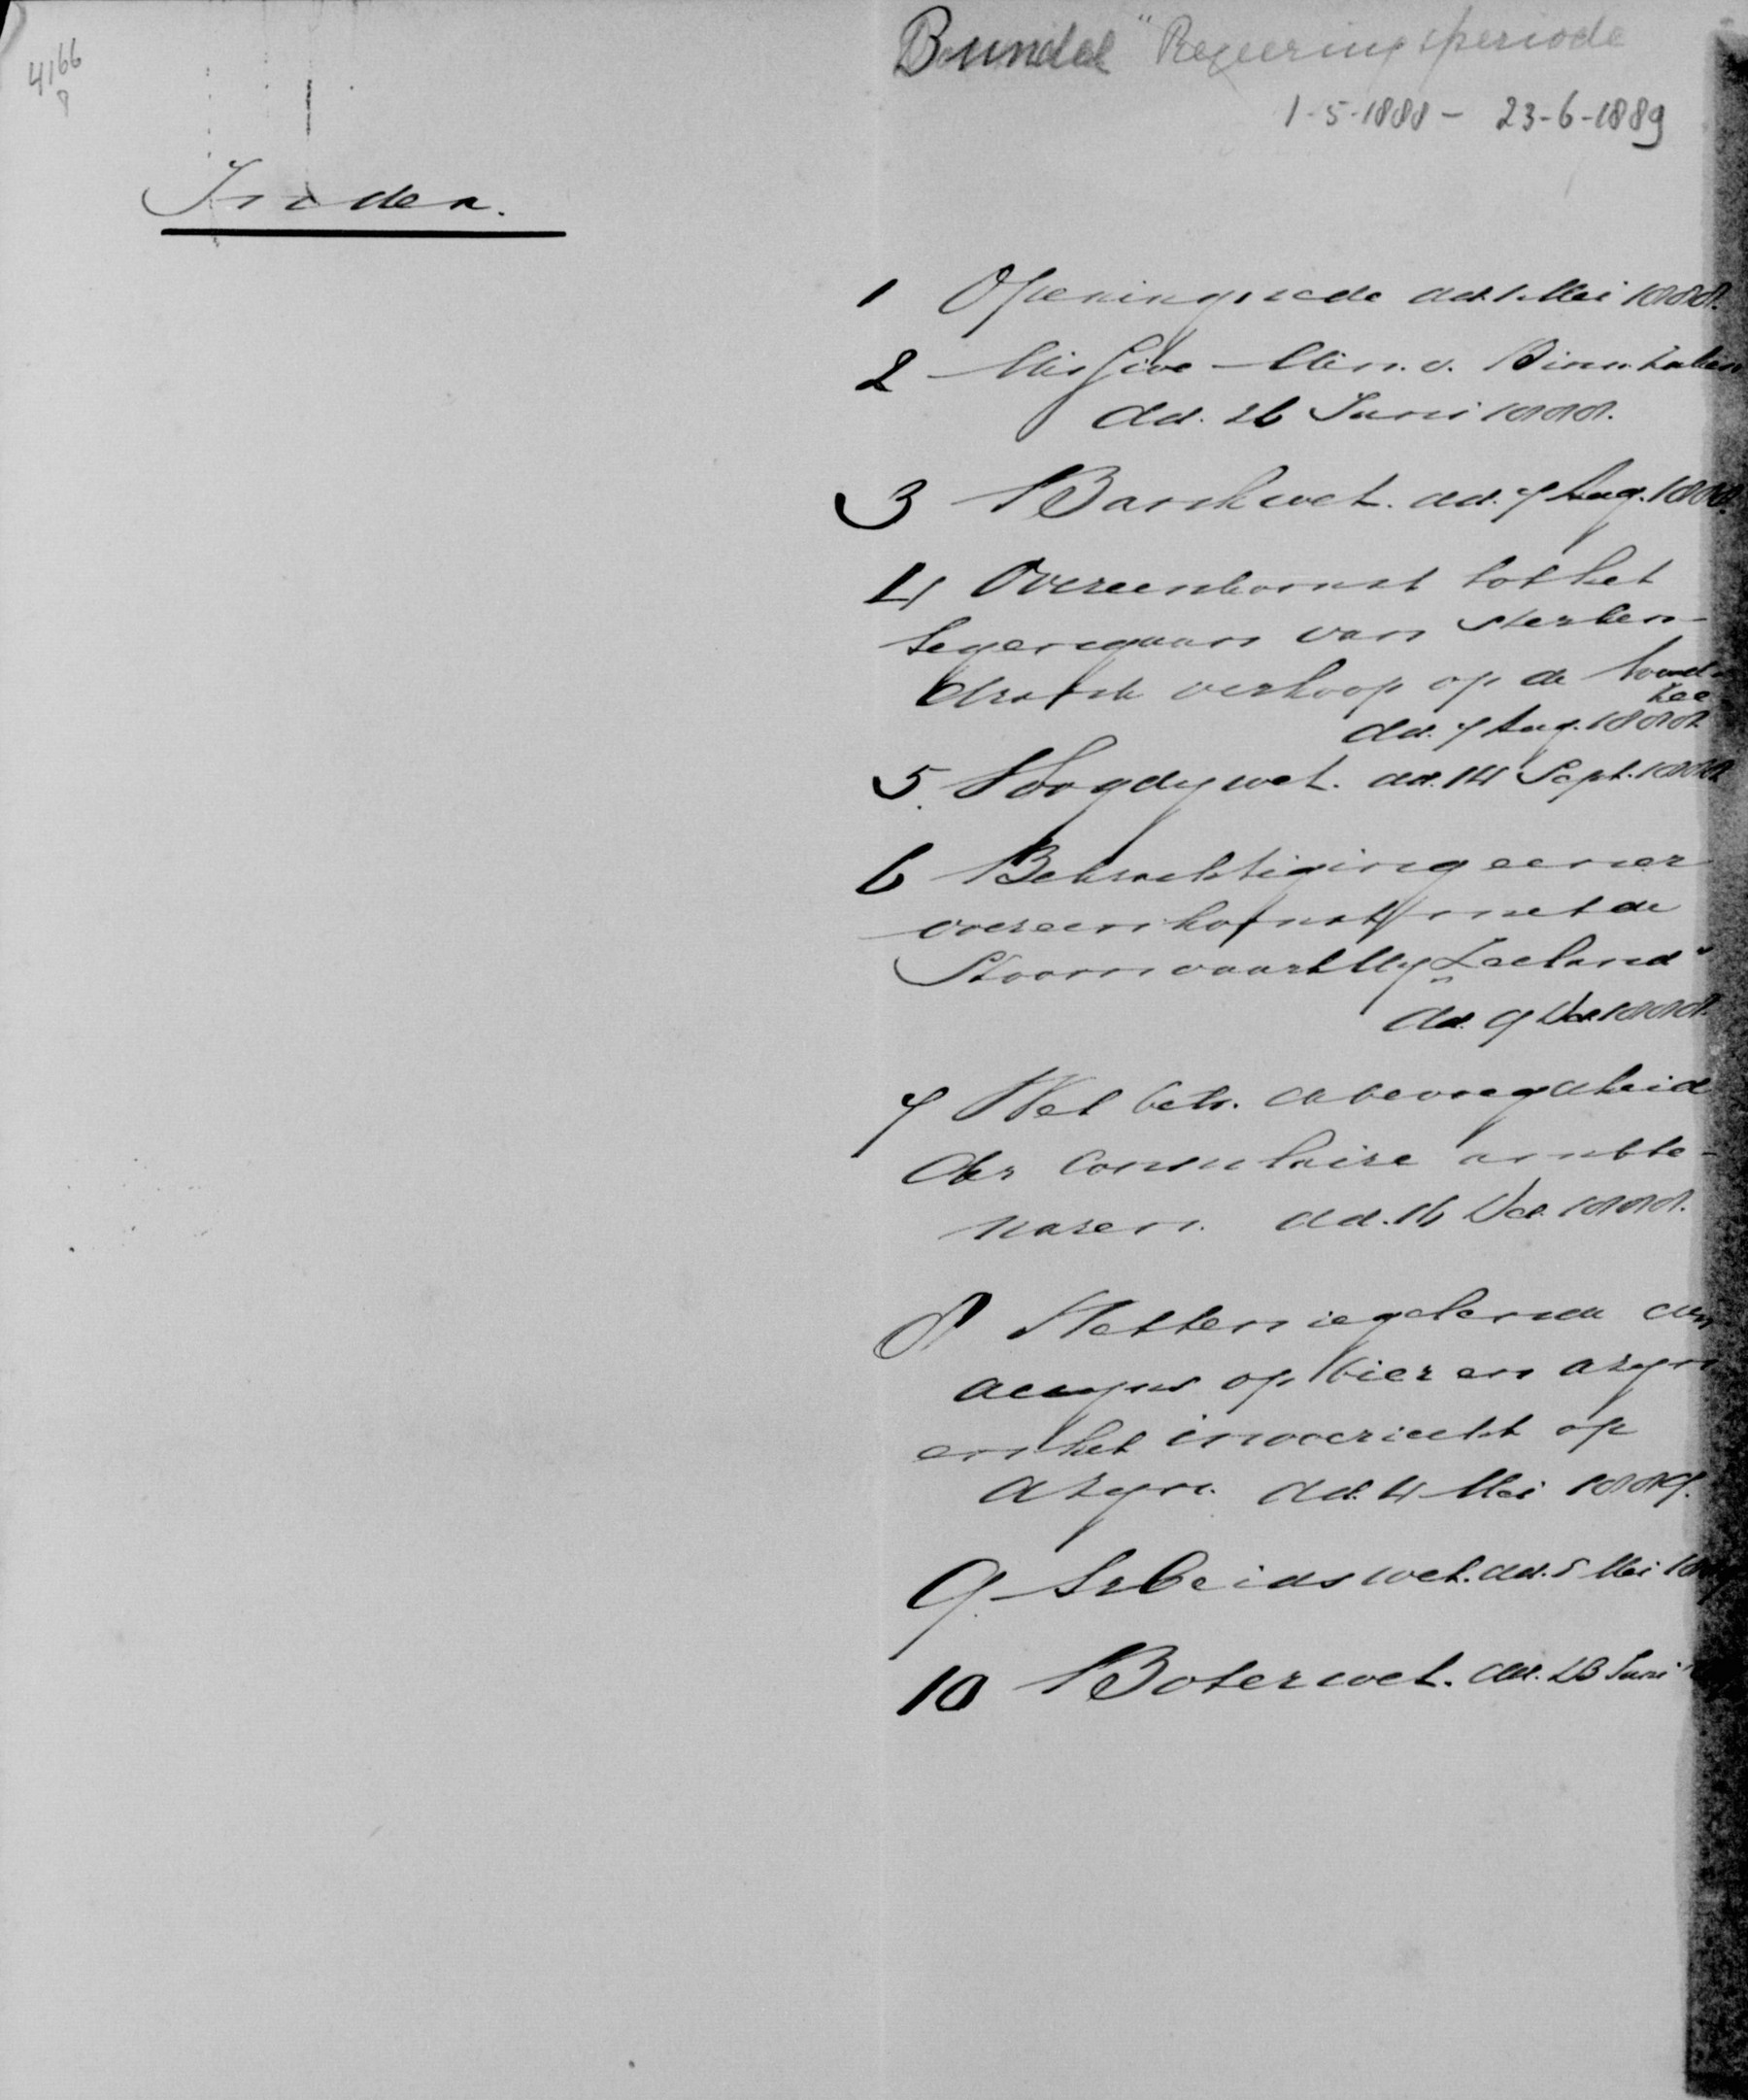 4166
8
Bundel "Regeeringsperiode
1-5-1888 - 23-6-1889
Index.
1 Openingsrede dd. 1 Mei 1888.
2 Missive Min. v. Binn. Zaken
dd. 26 Juni 1888.
3 Bankwet. dd. 7 Aug. 1888.
4 Overeenkomst tot het
tegengaan van sterken-
drank verkoop op de Noord-
zee
dd. 7 Aug. 1888
5. Voogdywet. dd. 14 Sept. 1888
6 Bekrachtiging eener
overeenkomst met de
Stoomvaart My „Zeeland"
dd. 9 Dec 1888.
7 Wet betr. de bevoegdheid
der Consulaire ambte-
naren. dd. 16 Dec. 1888.
8 Wetten regelende den
accyns op bier en azyn
en het invoerrecht op
azyn. dd. 4 Mei 1889.
9. Arbeidswet. dd. 5 Mei
10 Boterwet. dd. 23 Juni